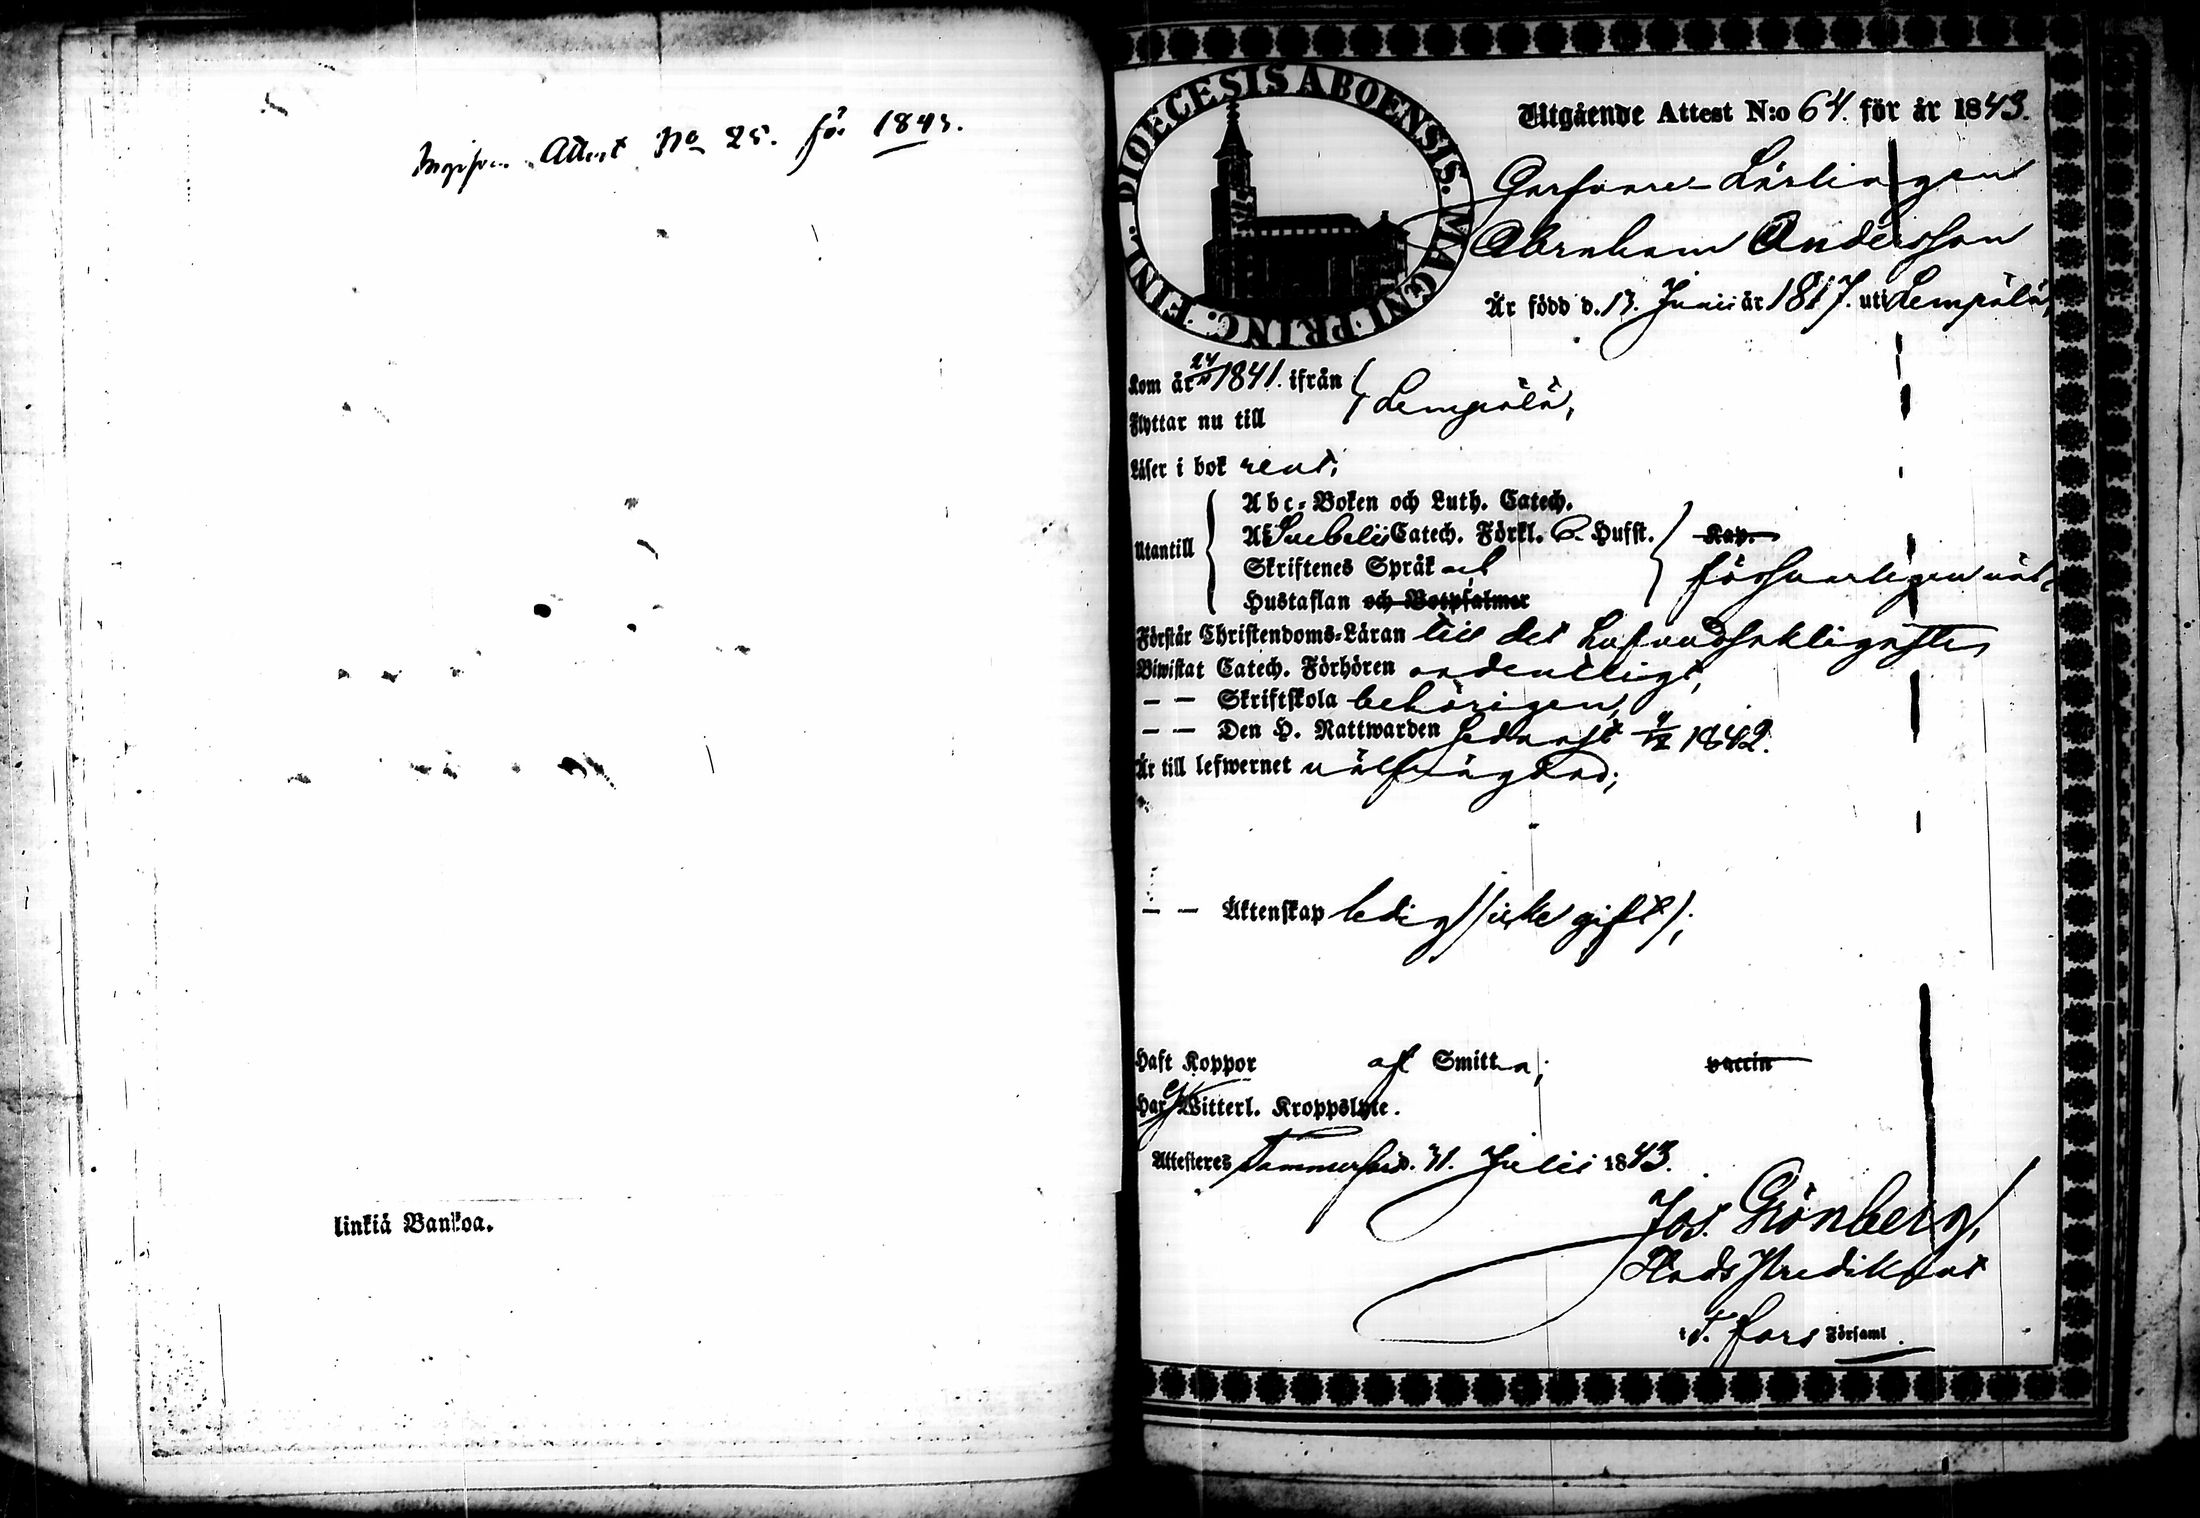 Attest No 25. för 1843.
linkiä Bankoa.
DIOECESIS ABOENSIS. MAGNI PRINC. FINL.
Utgående Attest N:o 64. för år 1843.
Garfvare-Lärlingen
Abraham Andersson
Är född d. 13. Junii år 1817. uti Lempälä,
Kom år 1841. ifrån
Lempälä,
Flyttar nu till
Läser i bok rent;
Abc-Boken och Luth. Catech.
Utantill
Svebelii Catech. Förkl. Hufst. Kap.
Skriftenes Språk och
Hustaflan och Botpsalmer
försvarligen väl
Förstår Christendoms-Läran till det hufvudsakligaste,
Biwistat Catech. Förhören ordentligt,
— — Skriftskola behörigen,
— — Den H. Nattwarden sednast 1842.
Är till lefwernet välfrägdad;
— — Äktenskap ledig (icke gift);
Haft Koppor af Smitta; vaccin
Har ej Witterl. Kroppslyte.
Attesteres Tammerfors d. 31. Julii 1843.
Jos. Grönberg,
Stads Predikant
i T. fors Församl.